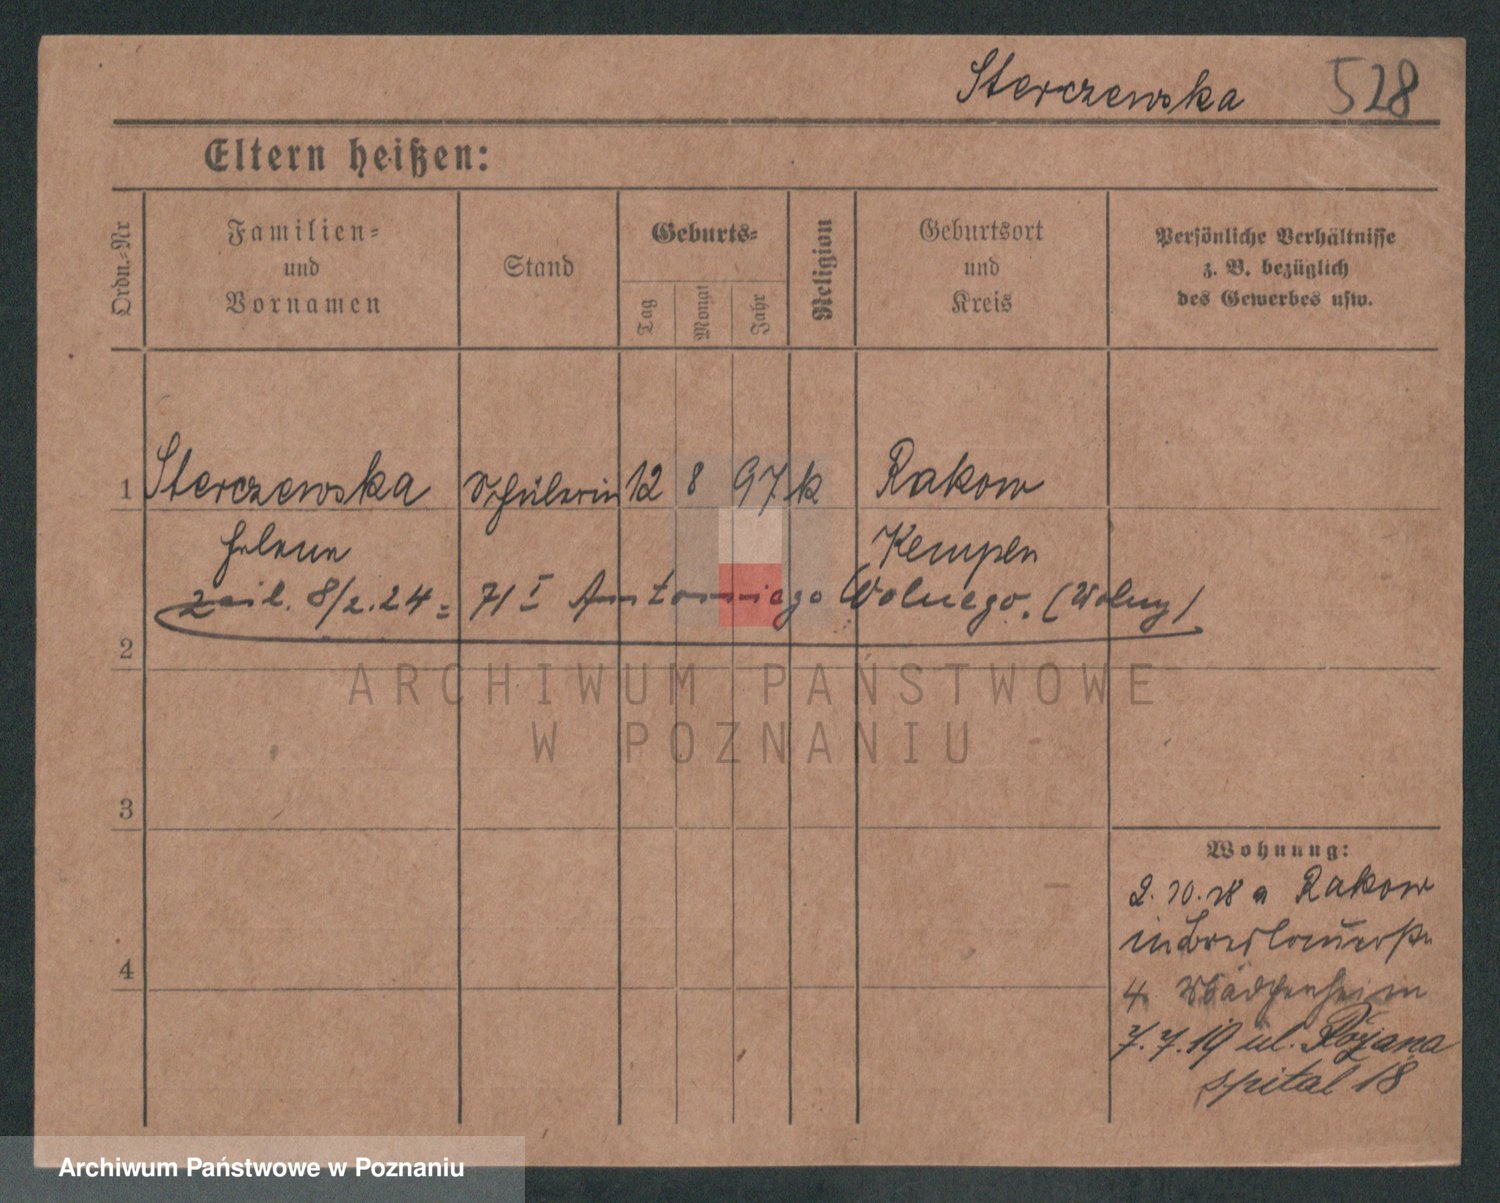 Sterczewska 528
Eltern heißen:
Ordn.-Nr
Familien-
und
Vornamen
Stand
Geburts-
Tag
Monat
Jahr
Religion
Geburtsort
und
Kreis
Persönliche Verhältnisse
z. B. bezüglich
des Gewerbes usw.
1 Sterczewska Schülerin 12 8 97 k Rakow
Helene Kempen
8/2.24 = 71 I Antoniego Wolnego. (Wolny)
2
3
4
Wohnung:
2.10.18 a Rakow
in Breslauerstr
4 Mädchenheim
7.7.19 ul. Różana
spital 18
ARCHIWUM PAŃSTWOWE
W POZNANIU
Archiwum Państwowe w Poznaniu